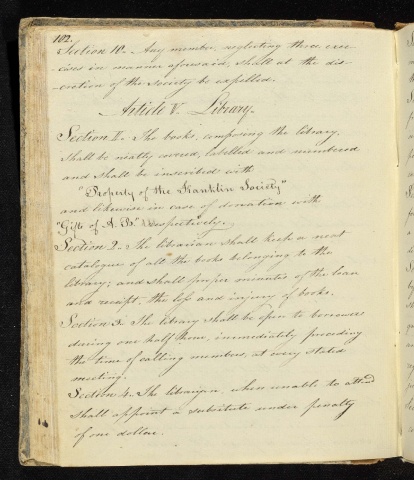 102.
Section 10. Any member, neglecting three exer-
-cises in manner aforesaid, shall at the dis-
-cretion of the Society be expelled.
Article V. Library.
Section 1. The books, composing the library,
shall be neatly covered, labelled and numbered
and shall be inscribed with
"Property of the Franklin Society"
and likewise in case of donation with
"Gifts of A. B." respectively.
Section 2. The librarian shall keep a neat
catalogue of all the books belonging to the
library; and shall minutes of the loan
and receipt, the loss and injury of books.
Section 3. The library shall be open to borrowers
during one half hour, immediately preceding
the time of calling members, at every stated
meeting.
Section 4. The librarian, when unable to attend
shall appoint a substitute under penalty
of one dollar.